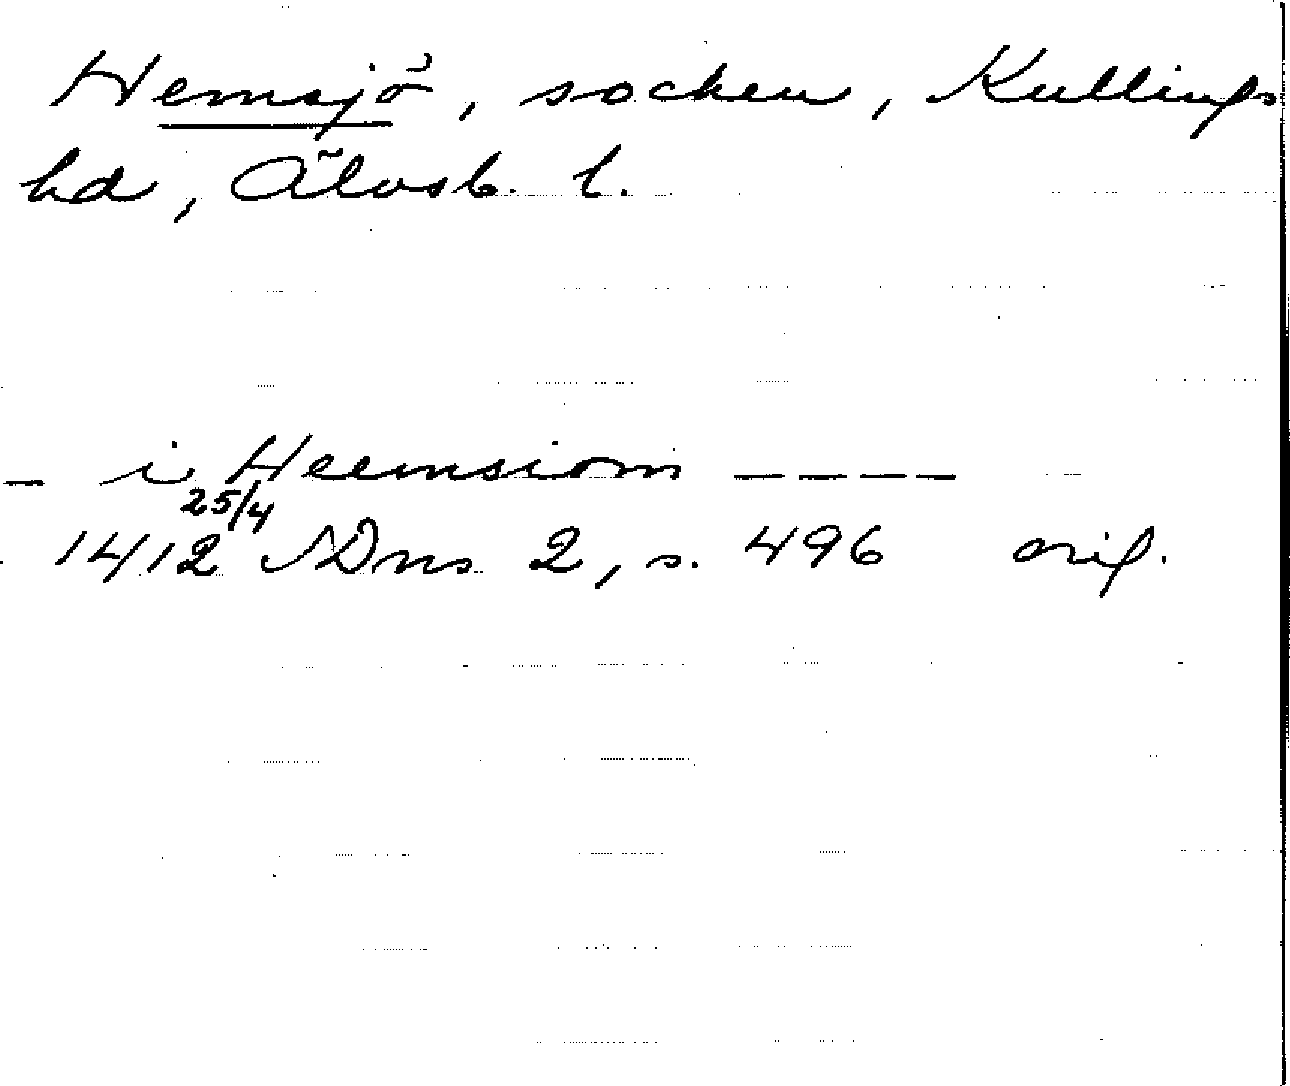 Hemsjö, socken, Kullings
hd, Älvsb. l.
– i Heemsiom – – – –
25/4
1412 NDns 2, s. 496 orig.